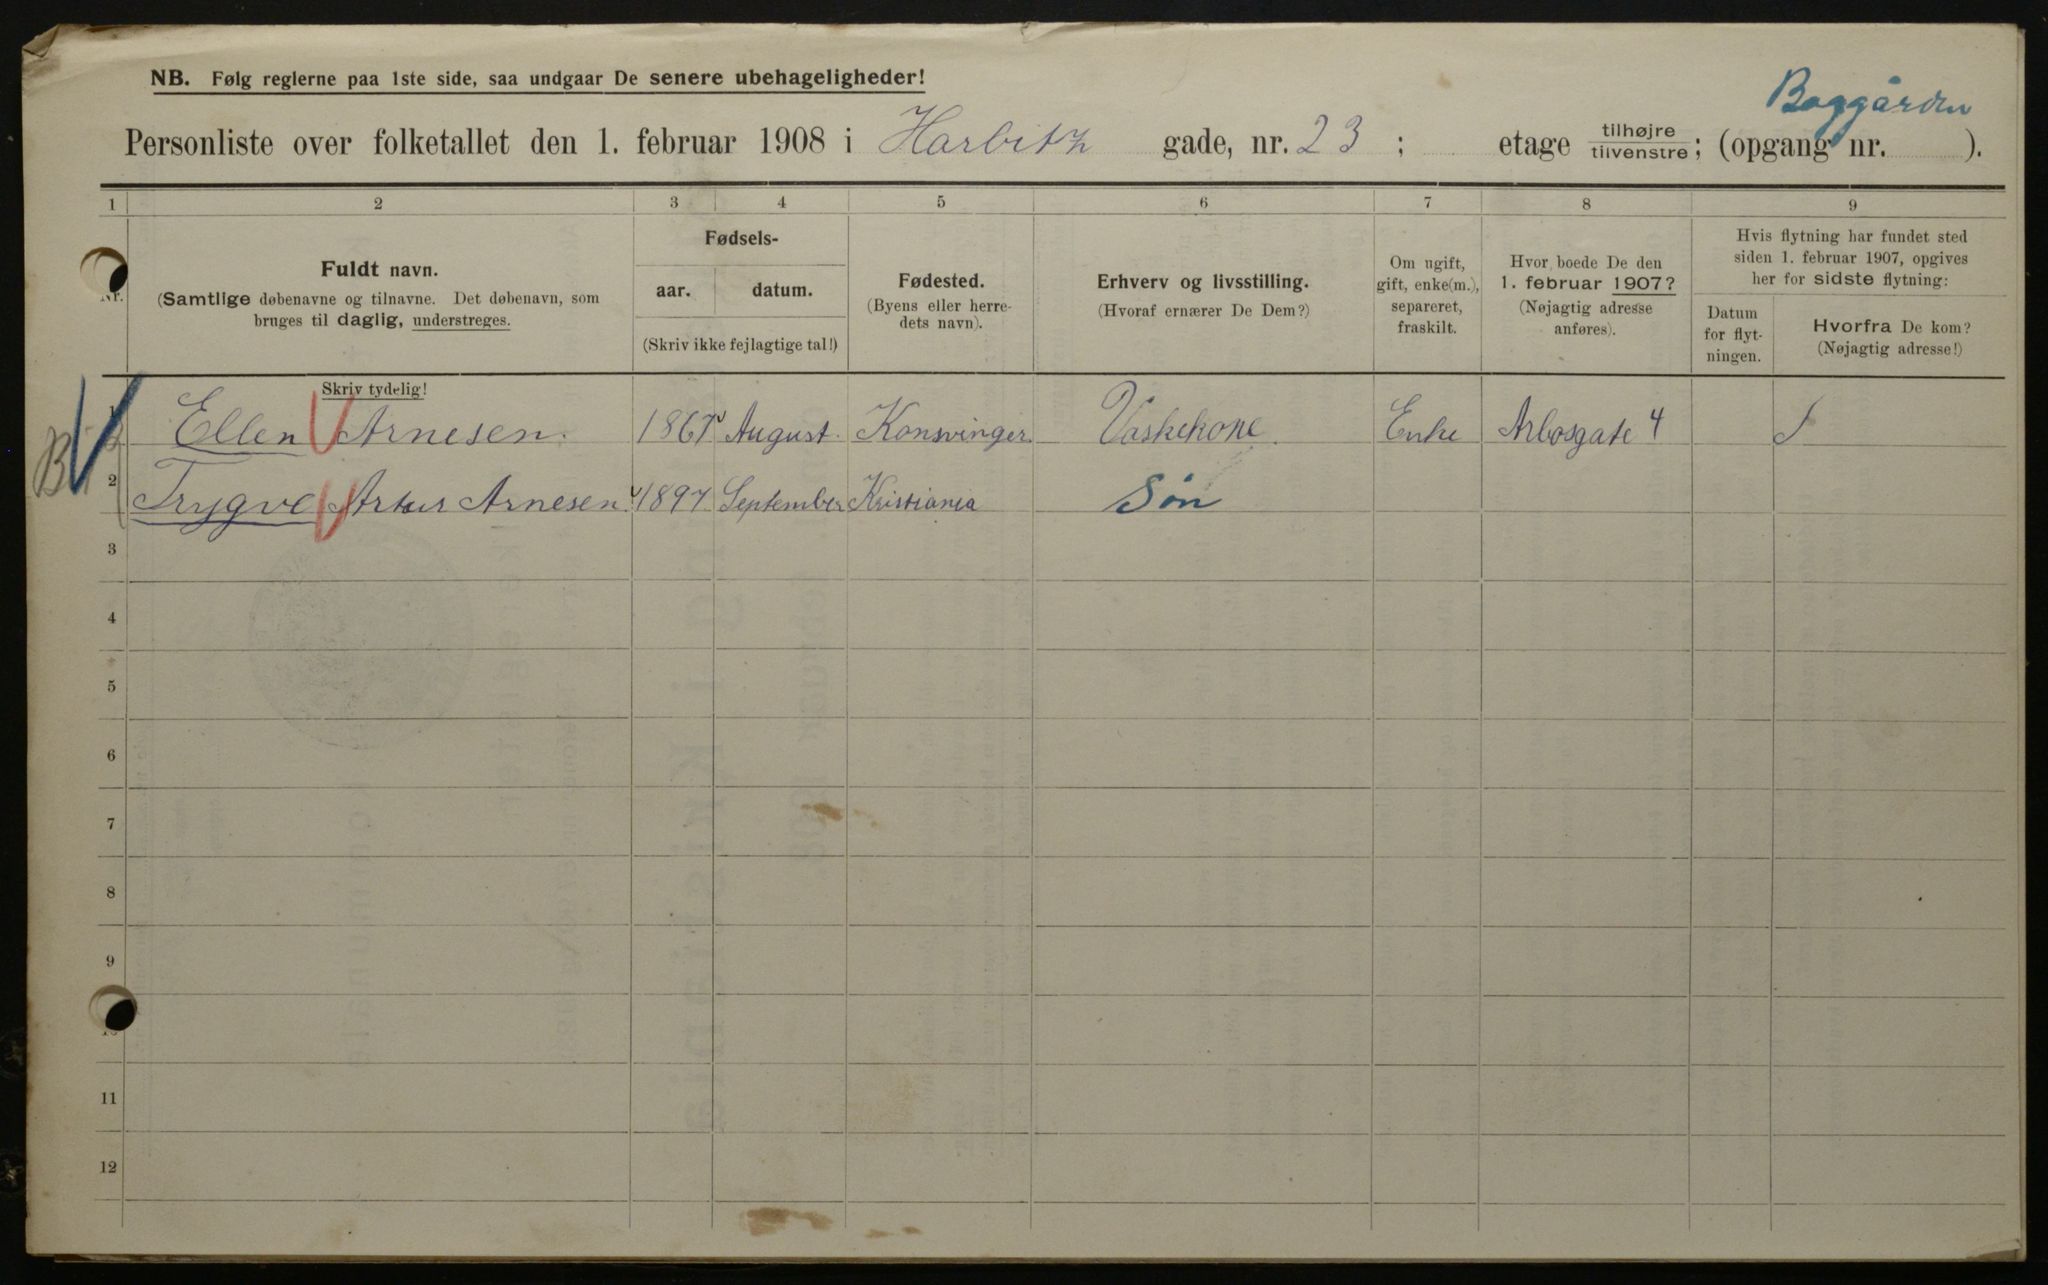 NB. Følg reglerne paa 1ste side, saa undgaar De senere ubehageligheder!
Baggården
Personliste over folketallet den 1. februar 1908 i Harbitz gade, nr. 23 ; etage tilhøjre / tilvenstre; (opgang nr. ).
1 2 3 4 5 6 7 8 9
Nr.
Fuldt navn.
(Samtlige døbenavne og tilnavne. Det døbenavn, som
bruges til daglig, understreges.
Skriv tydelig!
Fødsels-
aar. datum.
(Skriv ikke fejlagtige tal!)
Fødested.
(Byens eller herre-
dets navn).
Erhverv og livsstilling.
(Hvoraf ernærer De Dem?)
Om ugift,
gift, enke(m.),
separeret,
fraskilt.
Hvor boede De den
1. februar 1907?
(Nøjagtig adresse
anføres).
Hvis flytning har fundet sted
siden 1. februar 1907, opgives
her for sidste flytning:
Datum
for flyt-
ningen.
Hvorfra De kom?
(Nøjagtig adresse!)
1 Ellen Arnesen. 1867 August. Konsvinger. Vaskekone. Enke Arbosgate 4
2 Trygve Artur Arnesen 1897 September Kristiania Søn
3
4
5
6
7
8
9
10
11
12